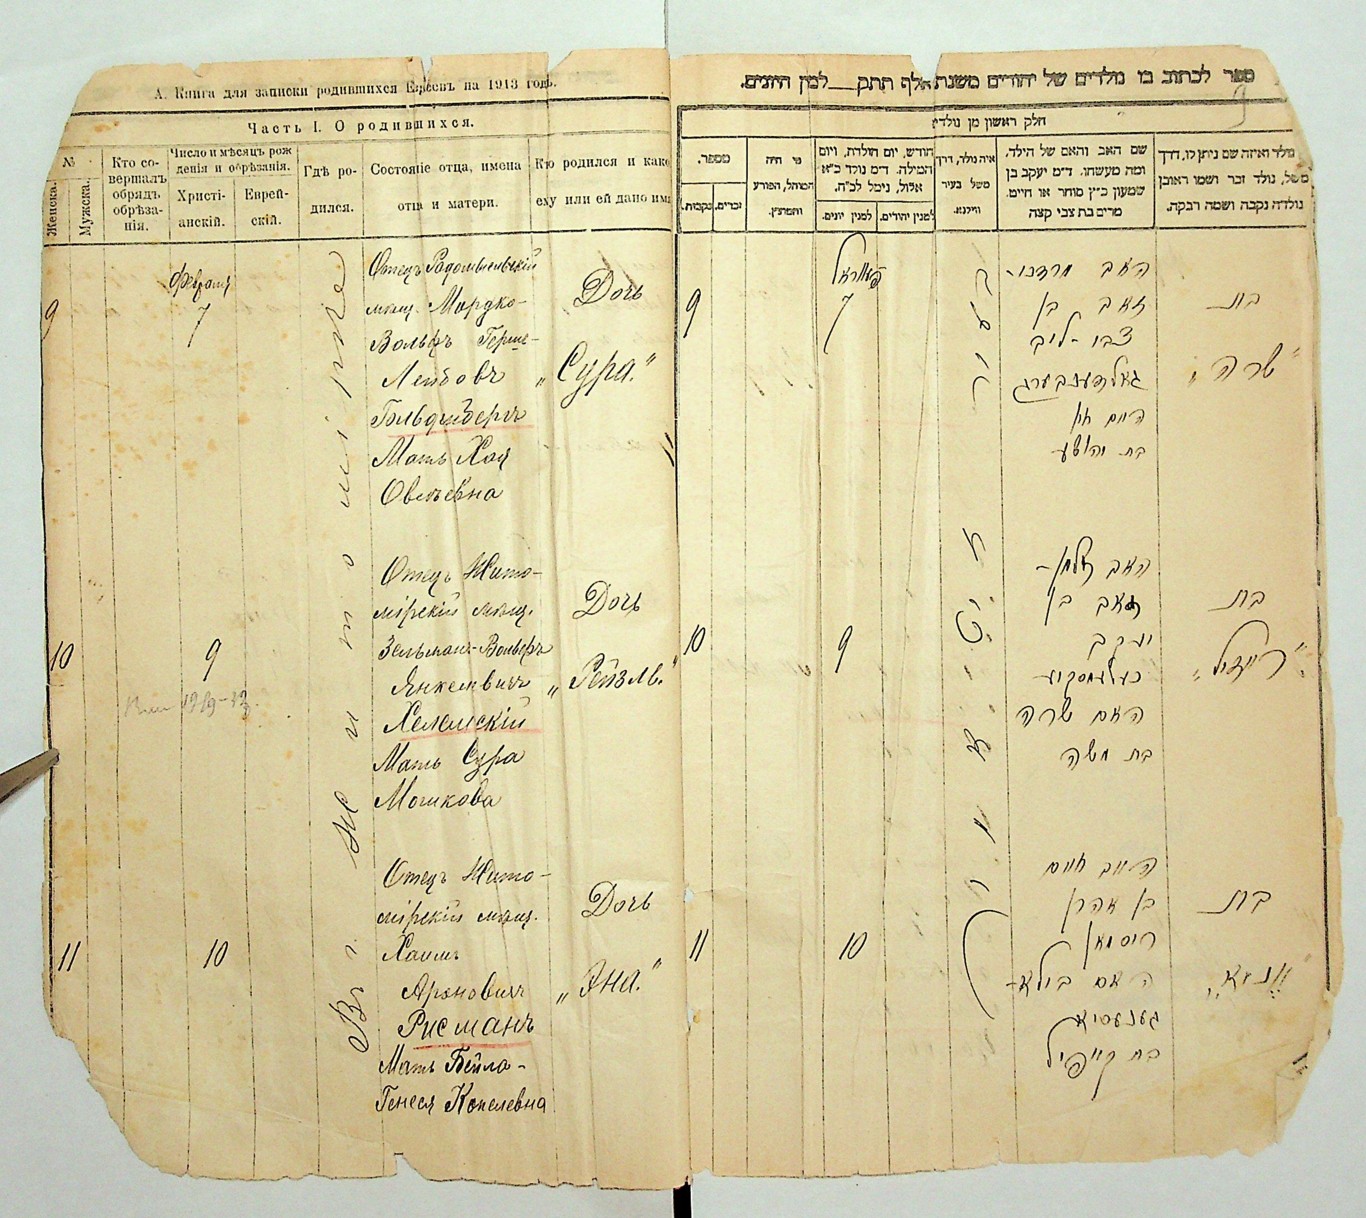 А. Книга для записки родившихся Евреевъ на 1913 годъ.
Часть I. О родившихся.
№
Женска.
Мужска.
Кто со-
вершалъ
обрядъ
обрѣза-
нія.
Число и мѣсяцъ рож
денія и обрѣзанія.
Христі-
анскій.
Еврей-
скій.
Гдѣ ро-
дился.
Состояніе отца, имена
отца и матери.
Кто родился и како
ему или ей дано имя
Въ г. Житомірѣ
9
Февраля
7
Отецъ Радомысльскій
мѣщ. Мордко-
Вольфъ Герше-
Лейбовъ
Гольденбергъ
Мать Хая
Овсеевна
Дочь
„Сура."
10
9
Отецъ Жито-
мірскій мѣщ.
Зельманъ-Вольфъ
Янкелевичъ
Хелемскій
Мать Сура
Мошкова
Дочь
„Рейзля."
11
10
Отецъ Жито-
мірскій мѣщ.
Хаимъ
Ароновичъ
Рисманъ
Мать Бейла-
Генеся Копелевна
Дочь
„Эна."
ספר לכתוב בו נולדים של יהודים משנת אלף תתק למן היונים.
חלק ראשון מן נולדים
מספר.
נקבות.
זכרים.
מי היה
המוהל, הפורע
והמוצץ.
חודש, יום הולדת, ויום
המילה. ד״מ נולד כ״א
אלול, נימל לכ״ח.
למנין יונים.
למנין יהודים.
איה נולד, דרך
משל בעיר
ווילנא.
שם האב והאם של הילד,
ומה מעשהו. ד״מ יעקב בן
שמעון כ״ץ סוחר או חיים.
מרים בת צבי קצה
נולד ואיזה שם ניתן לו, דרך
משל, נולד זכר ושמו ראובן
נולדה נקבה ושמה רבקה.
9
7
האב מרדכי-
זאב בן
צבי-ליב
האם חיה
בת יהושע
בת
„שרה"
10
9
האב זלמן-
זאב בן
יעקב
האם שרה
בת משה
בת
„רייזיל"
11
10
האב חיים
בן אהרן
ריסמאן
האם ביילא-
גענעסיא
בת קאפיל
בת